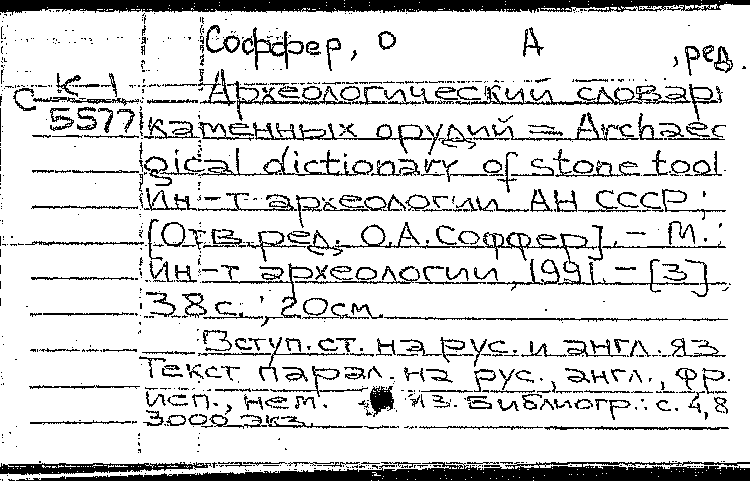 Соффер, О А , ред.
С К-1 Археологический словарь
5577 каменных орудий = Archaeo
gical dictionary of stone tool
Ин-т археологии АН СССР;
[Отв. ред. О.А. Соффер]. - М.:
Ин-т археологии, 1991. - [3]
38 с.; 20 см.
Вступ. ст. на рус. и англ. яз
Текст парал. на рус., англ., фр.
исп., нем. из. Библиогр.: с. 4, 8
3000 экз.